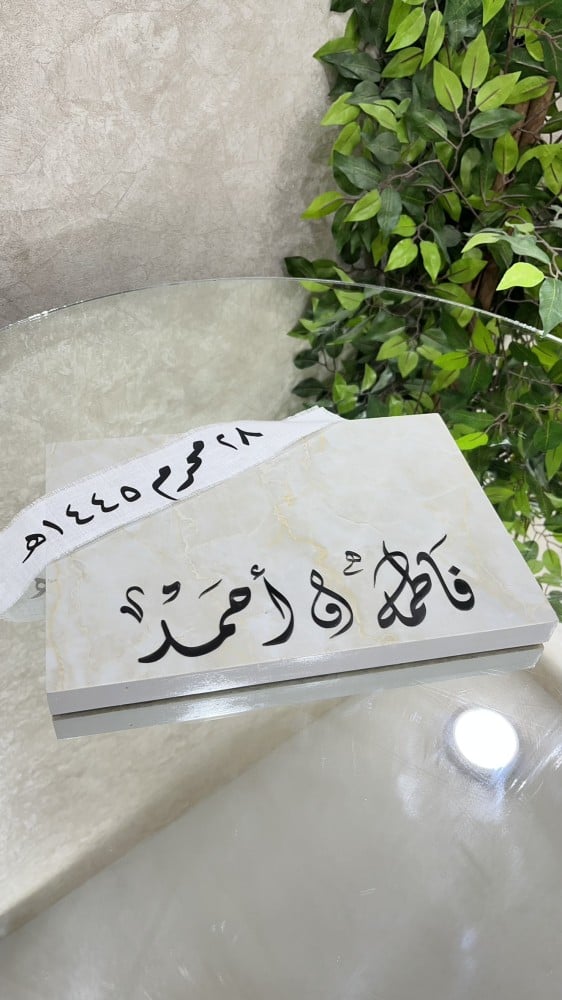 ٢٨ محرم ١٤٤٥هـ
فاطمة و أحمد